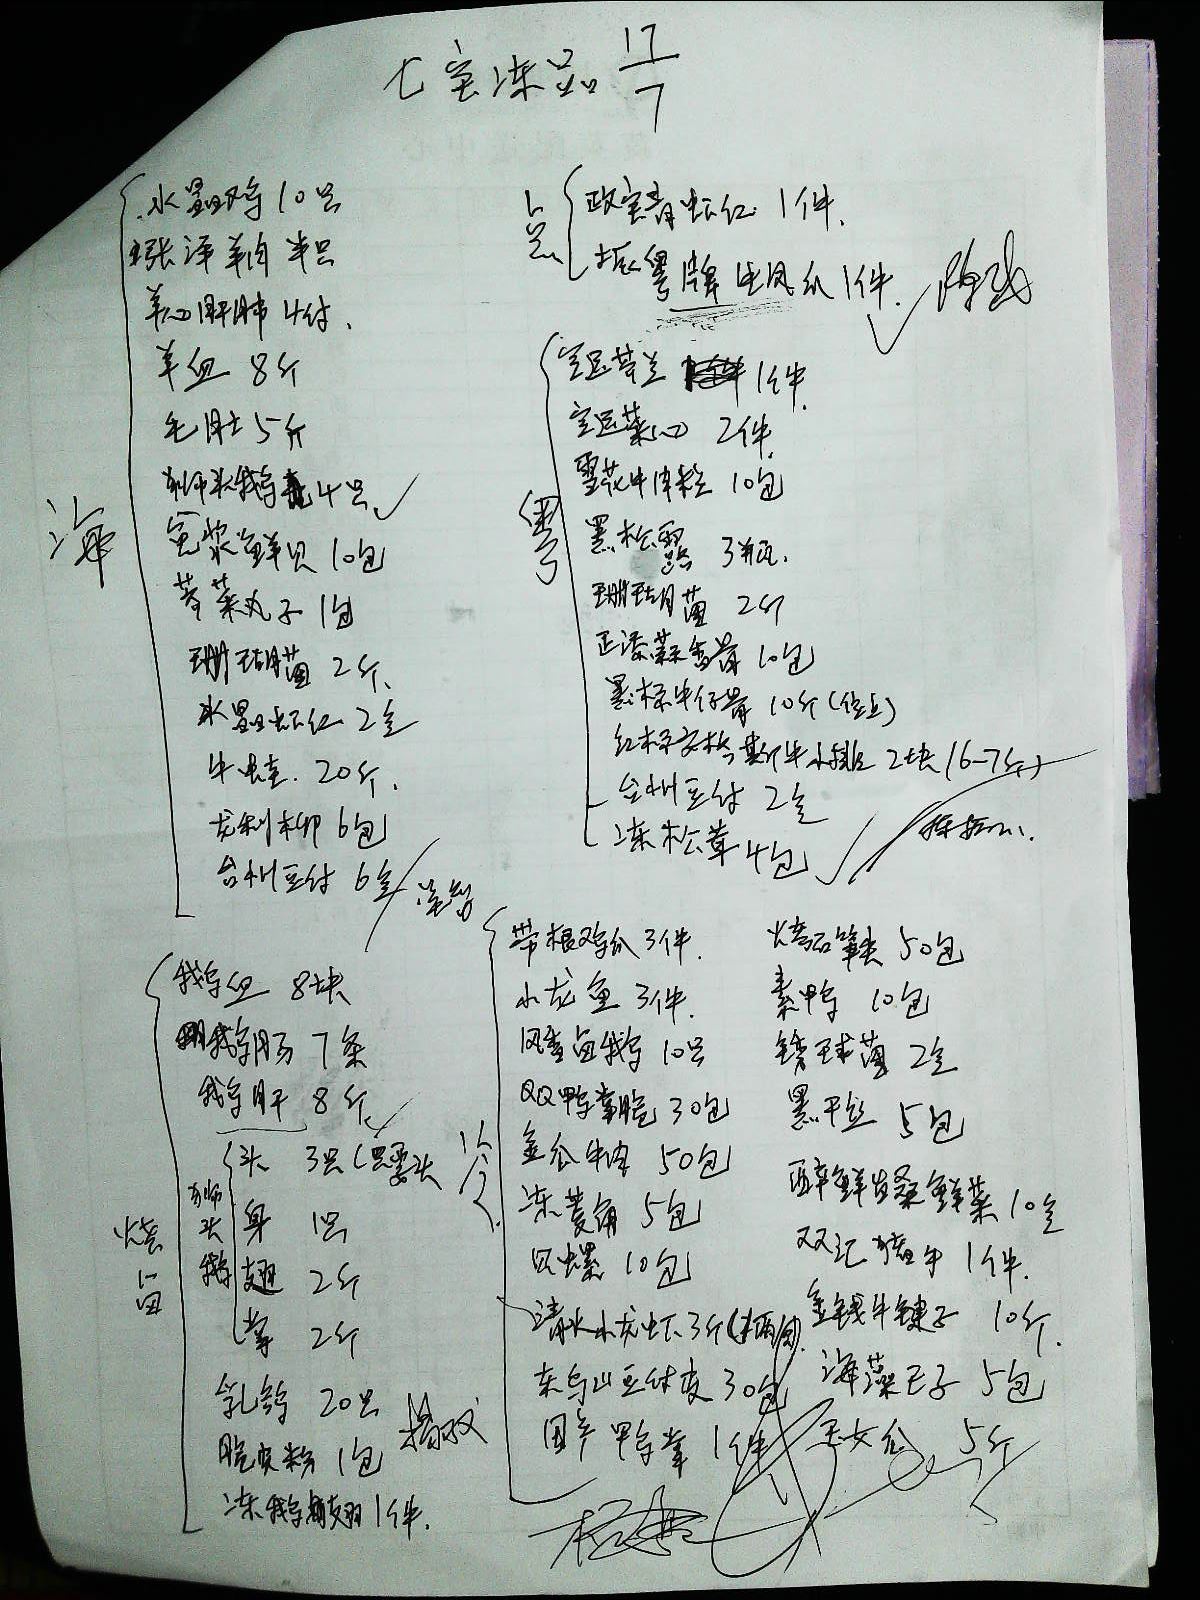 七宝冻品 17/7
海
水晶鸡 10只
张泽羊肉 半只
羊心肝肺 4付、
羊血 8斤
毛肚 5斤
狮头鹅 4只
鲜贝 10包
荠菜丸子 1包
珊瑚菌 2斤、
水晶虾仁 2盒
牛蛙. 20斤.
龙利柳 6包
台州豆付 6盒
点
政宝青虾仁. 1件.
振粤牌生凤爪 1件.
粤
空运芥兰 1件.
空运菜心 2件.
雪花牛肉粒 10包
黑松露 3瓶.
珊瑚菌 2斤
蒜香骨 10包
黑标牛仔骨 10斤
红标安格斯牛小排 2块(6-7斤)
台州豆付 2盒
冻松茸 4包
烧卤
鹅血 8块
鹅肠 7条
鹅肝 8斤
狮头鹅
头 3只(只要头
身 1只
翅 2斤
掌 2斤
乳鸽 20只
脆皮粉 1包
冻鹅翅 1件.
冷
带根鸡爪 3件.
小龙鱼 3件.
风香卤鹅 10只
QQ鸭掌脆 30包
金瓜牛肉 50包
冻菱角 5包
只螺 10包
清水小龙虾 3斤
东乌山豆付皮 30包
国产鸭掌 1件
50包
素鸭 10包
绣球菌 2盒
黑干丝 5包
醉鲜鲜菜 10盒
双汇猪手 1件.
金钱牛腱子 10斤.
海藻 5包
玉女瓜 5斤